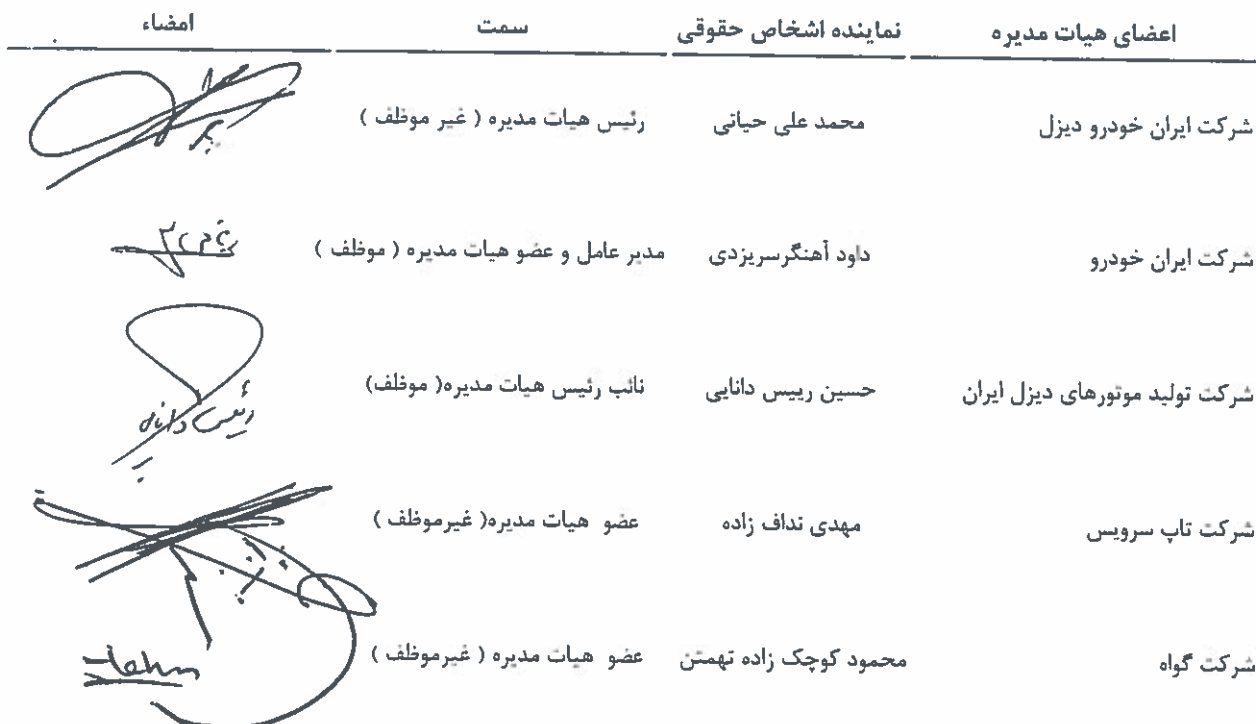 اعضای هیات مدیره نماینده اشخاص حقوقی سمت امضاء
شرکت ایران خودرو دیزل محمد علی حیاتی رئیس هیات مدیره ( غیر موظف )
شرکت ایران خودرو داود آهنگرسریزدی مدیر عامل و عضو هیات مدیره ( موظف )
شرکت تولید موتورهای دیزل ایران حسین رییس دانایی نائب رئیس هیات مدیره( موظف)
شرکت تاپ سرویس مهدی نداف زاده عضو هیات مدیره( غیرموظف )
شرکت گواه محمود کوچک زاده تهمتن عضو هیات مدیره ( غیرموظف )